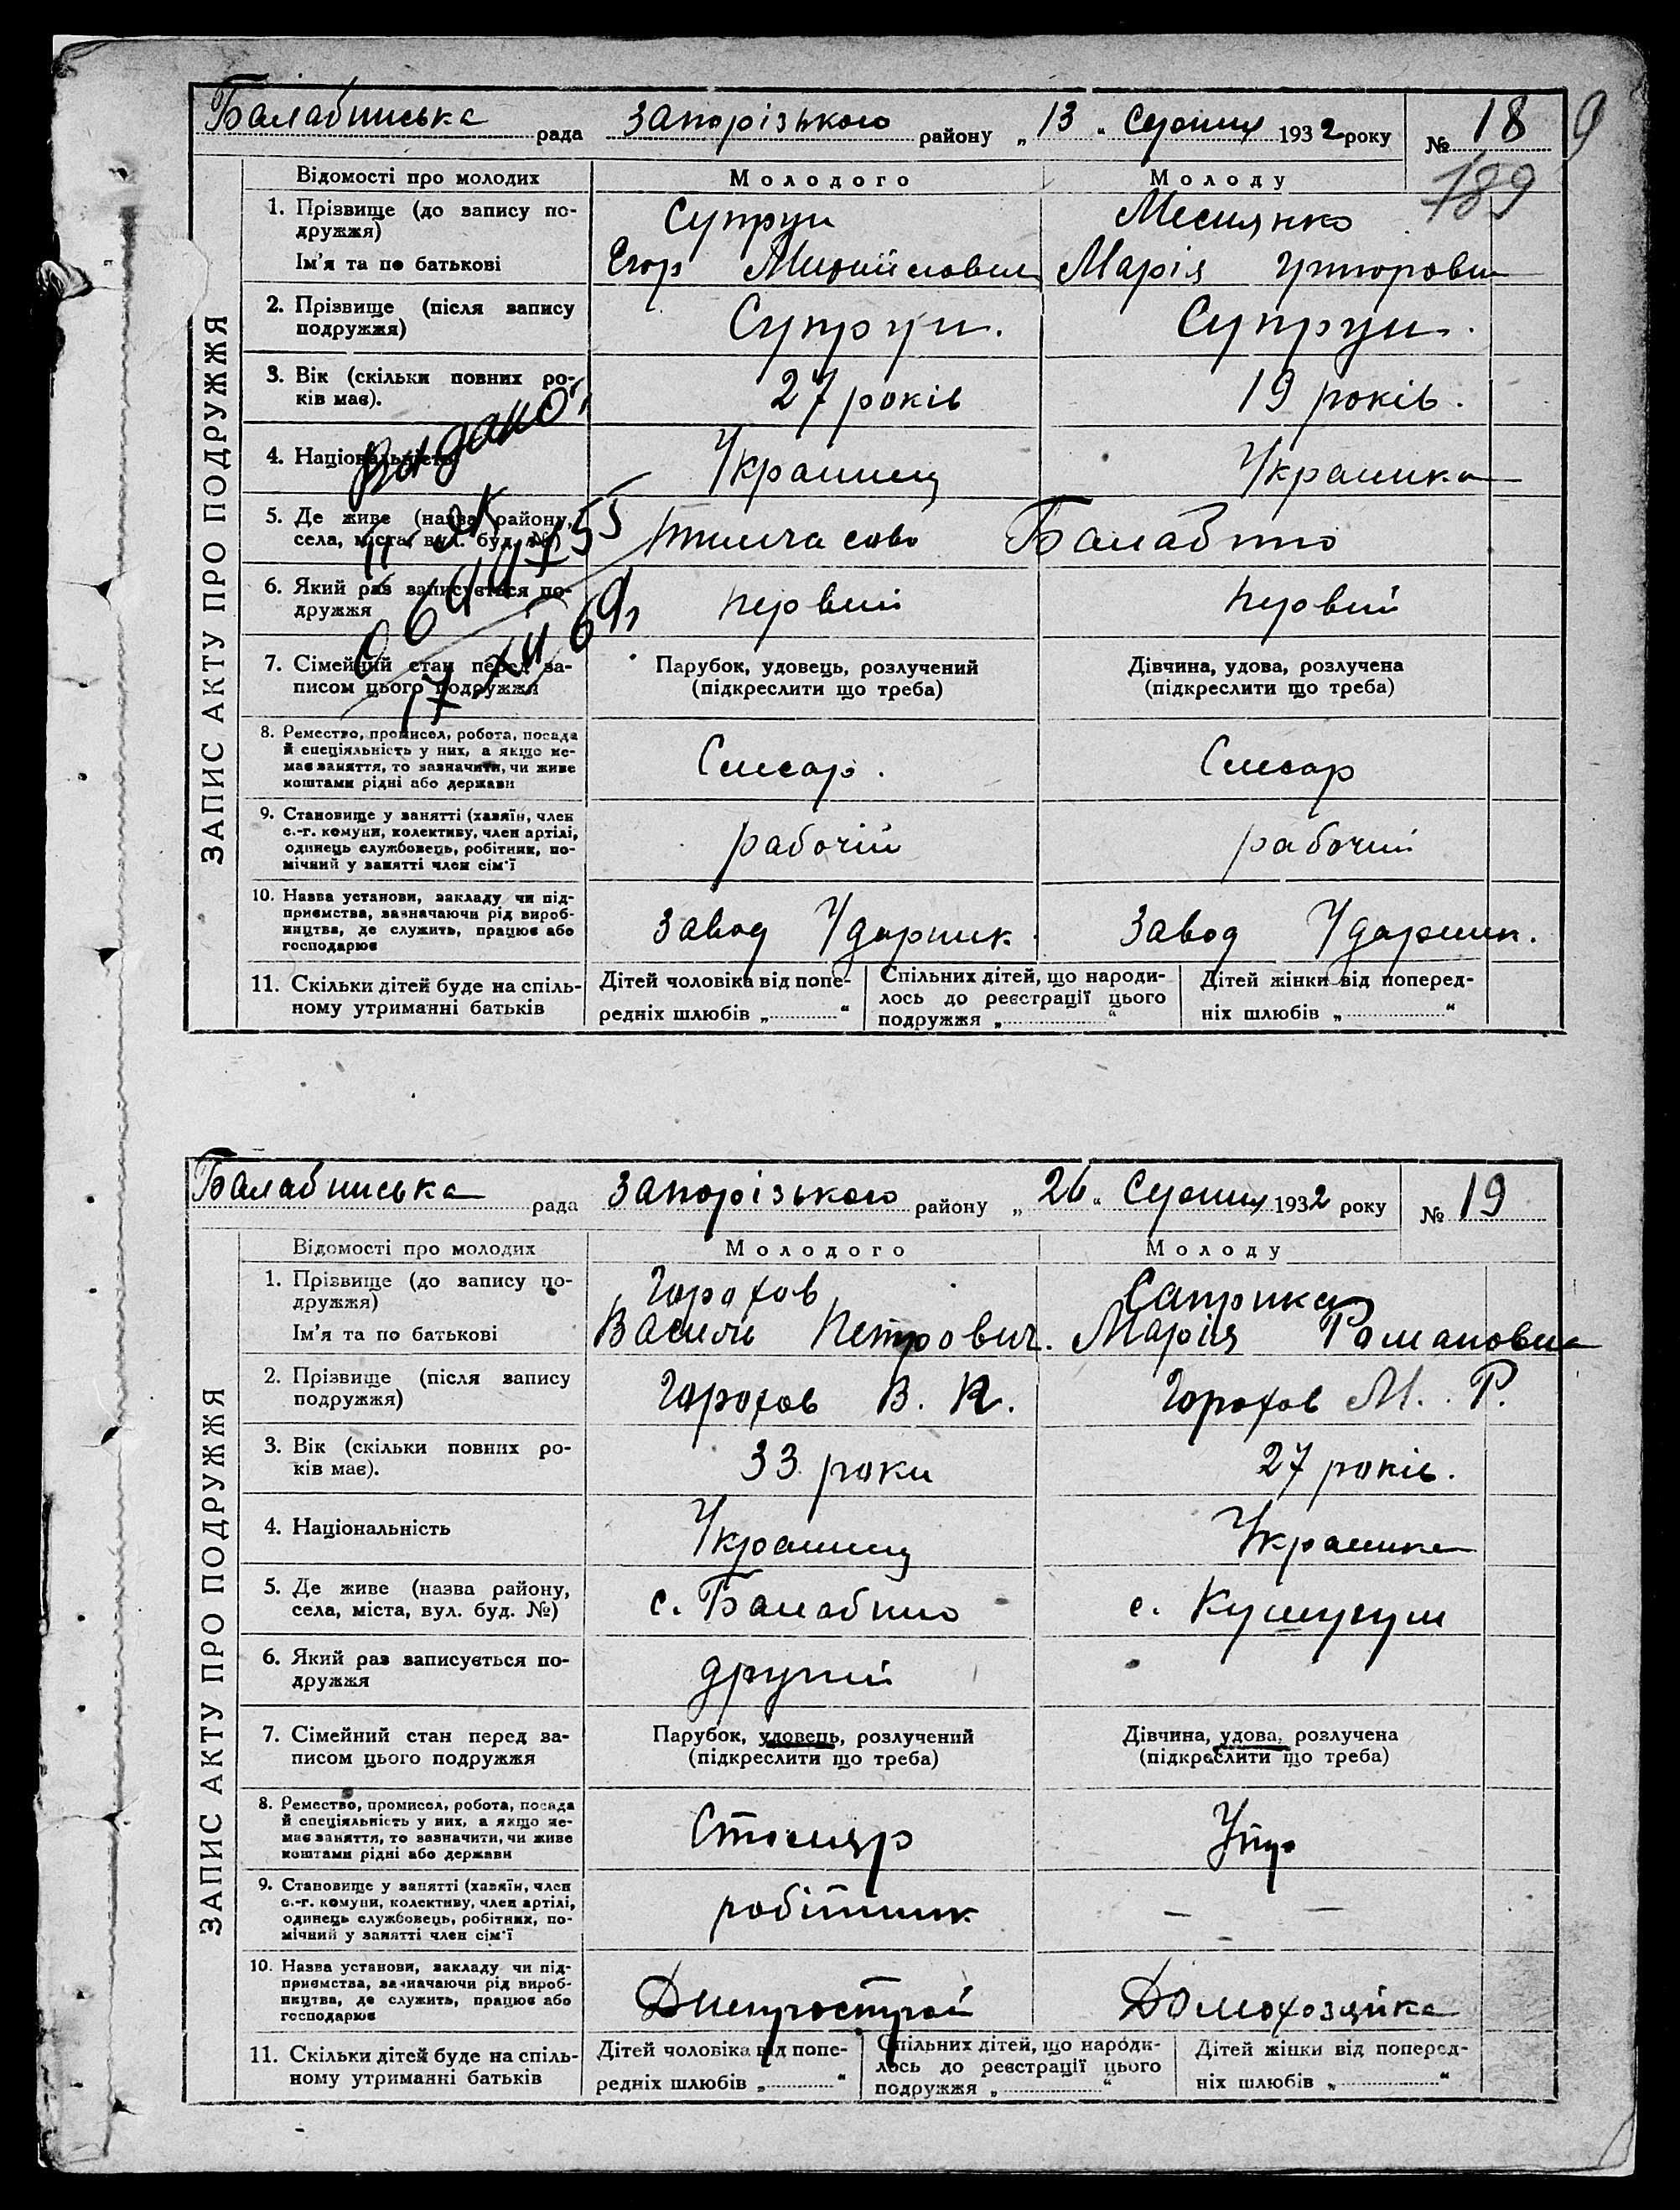 Балабинська рада Запорізького району „13“ Серпня 1932 року № 18
9
189
Відомості про молодих Молодого Молоду
ЗАПИС АКТУ ПРО ПОДРУЖЖЯ
1. Прізвище (до запису по-
дружжя)
Супрун
Ім'я та по батькові
Егор Марія
2. Прізвище (після запису
подружжя)
Супрун. Супрун.
3. Вік (скільки повних ро-
ків має).
27 років 19 років.
4. Національність
Українец Українка
5. Де живе (назва району,
села, міста, вул. буд. №)
тимчасово Балабино
6. Який раз записується по-
дружжя
первий первий
7. Сімейний стан перед за-
писом цього подружжя
Парубок, удовець, розлучений
(підкреслити що треба)
Дівчина, удова, розлучена
(підкреслити що треба)
8. Ремество, промисел, робота, посада
й спеціяльність у них, а якщо не-
має заняття, то зазначити, чи живе
коштами рідні або держави
Слесар. Слесар
9. Становище у занятті (хазяїн, член
с.-г. комуни, колективу, член артілі,
одинець службовець, робітник, по-
мічний у занятті член сім'ї
рабочій рабочий
10. Назва установи, закладу чи під-
приємства, зазначаючи рід вироб-
ництва, де служить, працює або
господарює
Завод Ударник. Завод Ударник.
11. Скільки дітей буде на спіль-
ному утриманні батьків
Дітей чоловіка від попе-
редніх шлюбів „ “
Спільних дітей, що народи-
лось до реєстрації цього
подружжя „ “
Дітей жінки від поперед-
ніх шлюбів „ “
Балабинська рада Запорізького району „26“ Серпня 1932 року № 19
Відомості про молодих Молодого Молоду
ЗАПИС АКТУ ПРО ПОДРУЖЖЯ
1. Прізвище (до запису по-
дружжя)
Горохов
Ім'я та по батькові
Василь Петрович. Марія Романовна
2. Прізвище (після запису
подружжя)
Горохов В. П. Горохов М. Р.
3. Вік (скільки повних ро-
ків має).
33 роки 27 років.
4. Національність
Українец Українка
5. Де живе (назва району,
села, міста, вул. буд. №)
с. Балабино с. Кушугум
6. Який раз записується по-
дружжя
другий
7. Сімейний стан перед за-
писом цього подружжя
Парубок, удовець, розлучений
(підкреслити що треба)
Дівчина, удова, розлучена
(підкреслити що треба)
8. Ремество, промисел, робота, посада
й спеціяльність у них, а якщо не-
має заняття, то зазначити, чи живе
коштами рідні або держави
Столяр
9. Становище у занятті (хазяїн, член
с.-г. комуни, колективу, член артілі,
одинець службовець, робітник, по-
мічний у занятті член сім'ї
робітник — —
10. Назва установи, закладу чи під-
приємства, зазначаючи рід вироб-
ництва, де служить, працює або
господарює
Днепрострой Домохозяйка
11. Скільки дітей буде на спіль-
ному утриманні батьків
Дітей чоловіка від попе-
редніх шлюбів „ “
Спільних дітей, що народи-
лось до реєстрації цього
подружжя „ “
Дітей жінки від поперед-
ніх шлюбів „ “